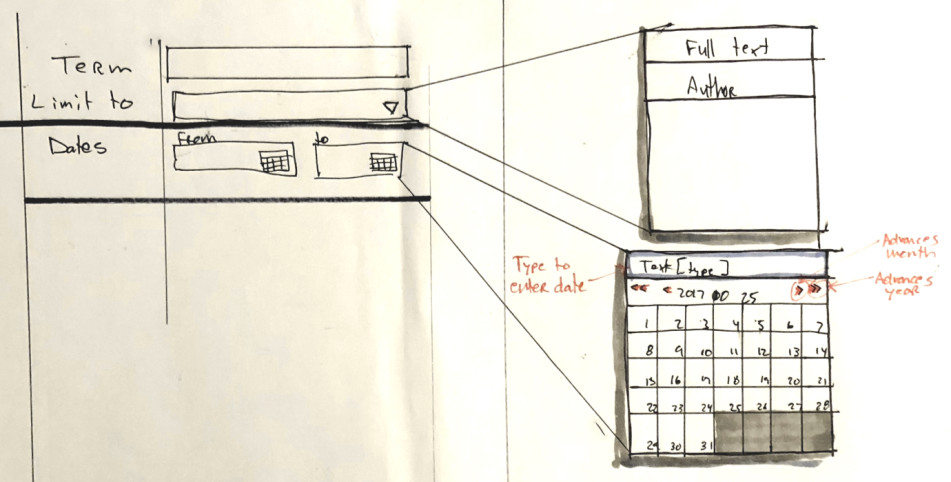 Term
Limit to
Dates
From
to
Full text
Author
Text [type]
Type to
enter date
Advances
month
Advances
year
<< < 2017 10 25 > >>
1 2 3 4 5 6 7
8 9 10 11 12 13 14
15 16 17 18 19 20 21
22 23 24 25 26 27 28
29 30 31